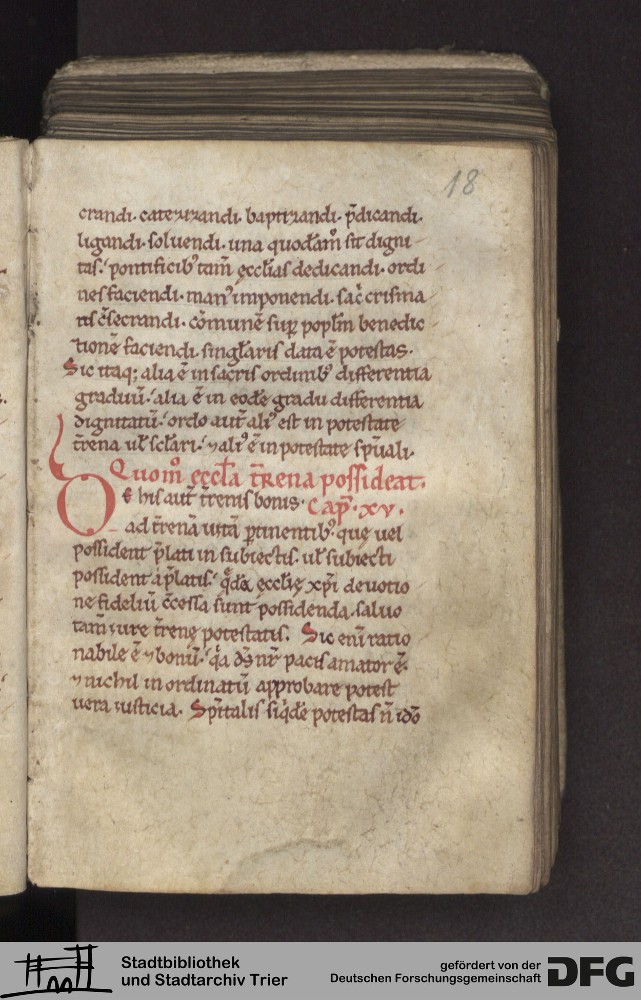 18
crandi. catezizandi. baptizandi. p̄dicandi.
ligandi. soluendi. una quodam̄ͦ sit digni
tas. pontificib᷒ tam̄ ęccłias dedicandi. ordi
nes faciendi. man᷒ imponendi. sac̄ crisma
tis c̄secrandi. cōmunē sup̱ popłm benedic
tionē faciendi. singłaris data ē potestas.
Sic itaq; alia ē in sacris ordinib᷒ differentia
graduū. alia ē in eodē gradu differentia
dignitatū. ordo aut̄ ali᷒ est in potestate
t̄rena uł sc̄lari. ⁊ ali᷒ ē in potestate sp̄uali.
Quom̊ ęccła t̄rena possideat.
De his aut̄ t̄renis bonis. Cap̄. xv.
ad t̄renā uitā ꝑtinentib᷒. que uel
possident p̄lati in subiectis. uł subiecti
possident a p̄latis. q̄dā ęccłię xp̄i deuotio
ne fideliū c̄cessa sunt possidenda. saluo
tam̄ iure t̄renę potestatis. Sic eni͞ ratio
nabile ē ⁊ bonū. qͣa d̄s nr̄ pacis amator ē.
⁊ nichil inordinatū approbare potest
uera iusticia. Sp̄italis siqͥdē potestas n̄ idō
Stadtbibliothek
und Stadtarchiv Trier
gefördert von der
Deutschen Forschungsgemeinschaft
DFG